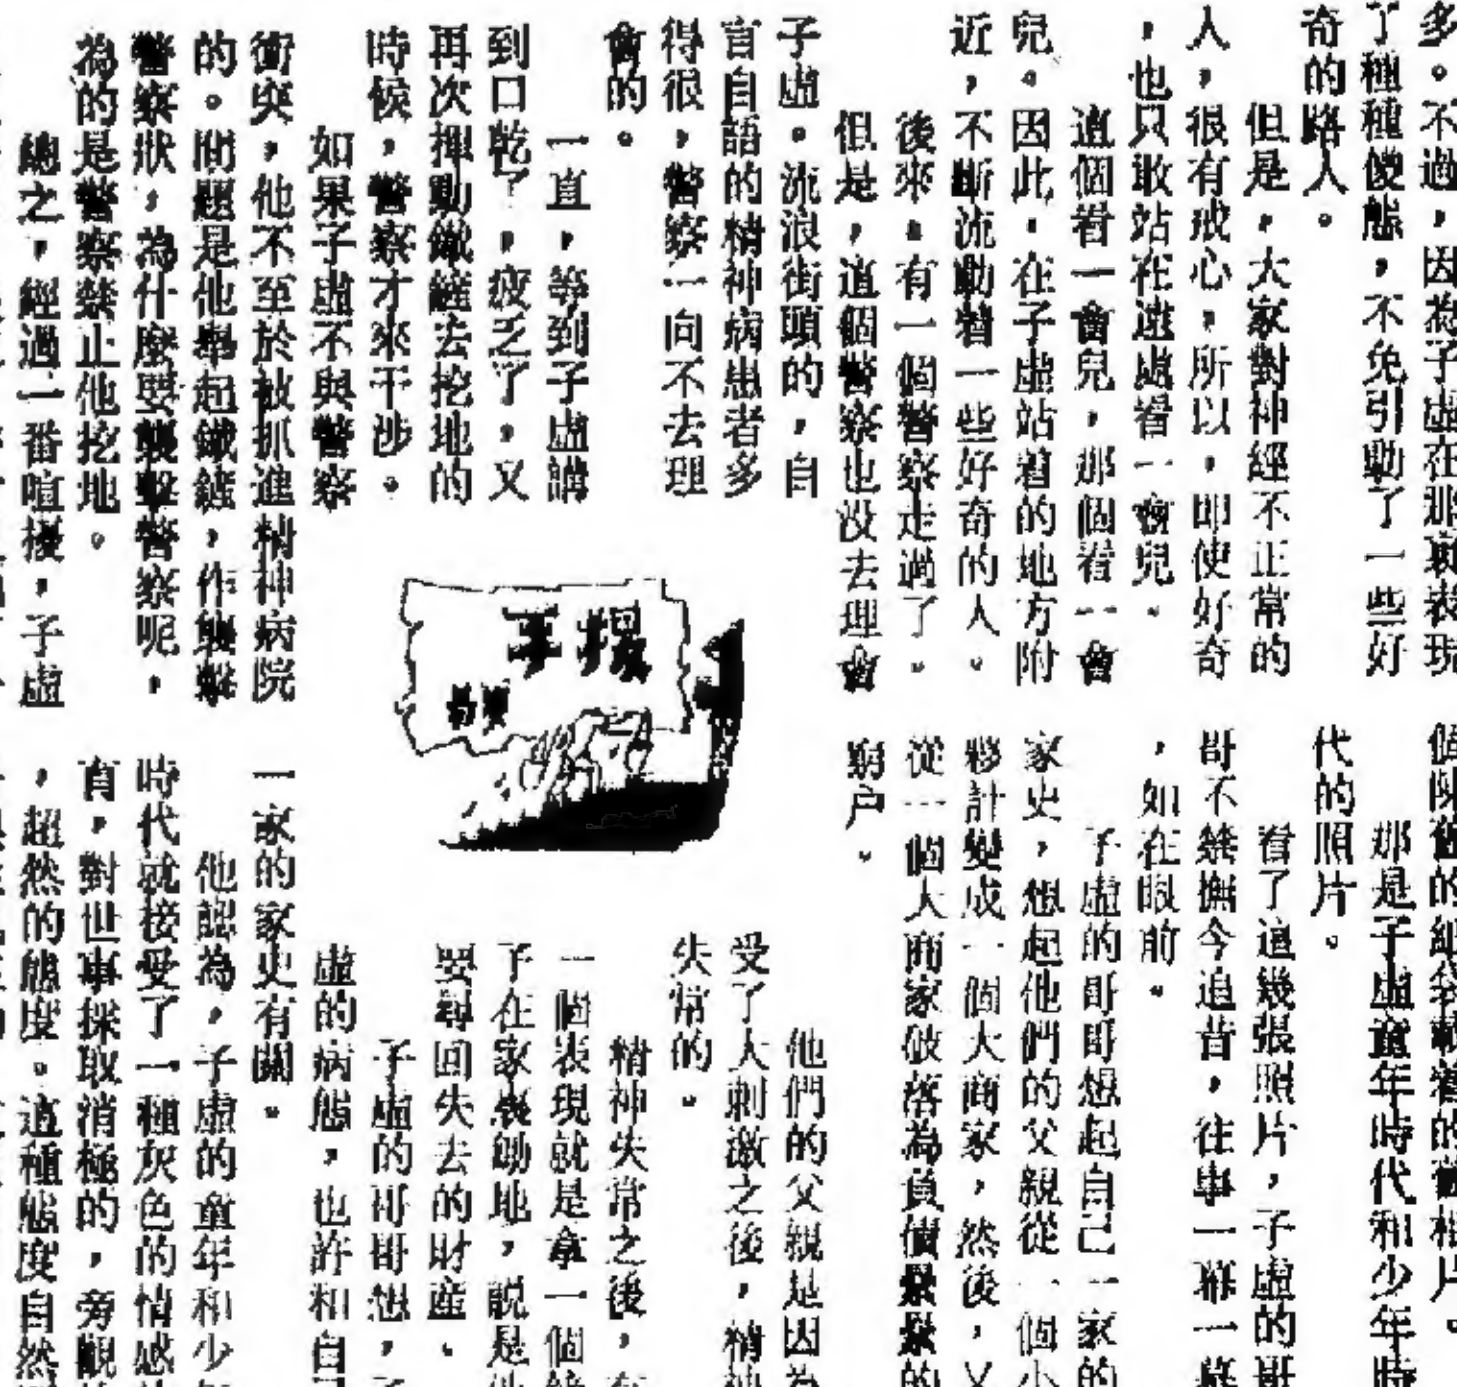 多。不過,因為子虛在那裏表現
了種種傻態,不免引動了一些好
奇的路人。
但是,大家對神經不正常的
人,很有戒心,所以,即使好奇
,也只敢站在遠處看一會兒。
這個看一會兒,那個看一會
兒。因此,在子虛站着的地方附
近,不斷流動着一些好奇的人。
後來,有一個警察走過了。
但是,這個警察也沒去理會
子虛。流浪街頭的,自
言自語的精神病患者多
得很,警察一向不去理
會的。
一直,等到子虛講
到口乾了,疲乏了,又
再次揮動鐵鏟去挖地的
時候,警察才來干涉。
如果子虛不與警察
衝突,他不至於被抓進精神病院
的。問題是他舉起鐵鏟,作襲擊
警察狀,為什麼要襲擊警察呢,
為的是警察禁止他挖地。
總之,經過一番喧擾,子虛
個陳舊的紙袋載着的舊相片。
那是子虛童年時代和少年時
代的照片。
看了這幾張照片,子虛的哥
哥不禁撫今追昔,往事一幕一幕
,如在眼前。
子虛的哥哥想起自己一家的
家史,想起他們的父親從一個小
夥計變成一個大商家,然後,又
從一個大商家破落為負債纍纍的
窮户。
他們的父親是因為
受了大刺激之後,精神
失常的。
精神失常之後,有
一個表現就是拿一個
了在家裏鋤地,説是
要尋回失去的財産。
子虛的哥哥想,子
虛的病態,也許和自己
一家的家史有關。
他認為,子虛的童年和少
時代就接受了一種灰色的情感
有,對世事採取消極的,旁觀
,超然的態度。這種態度自然